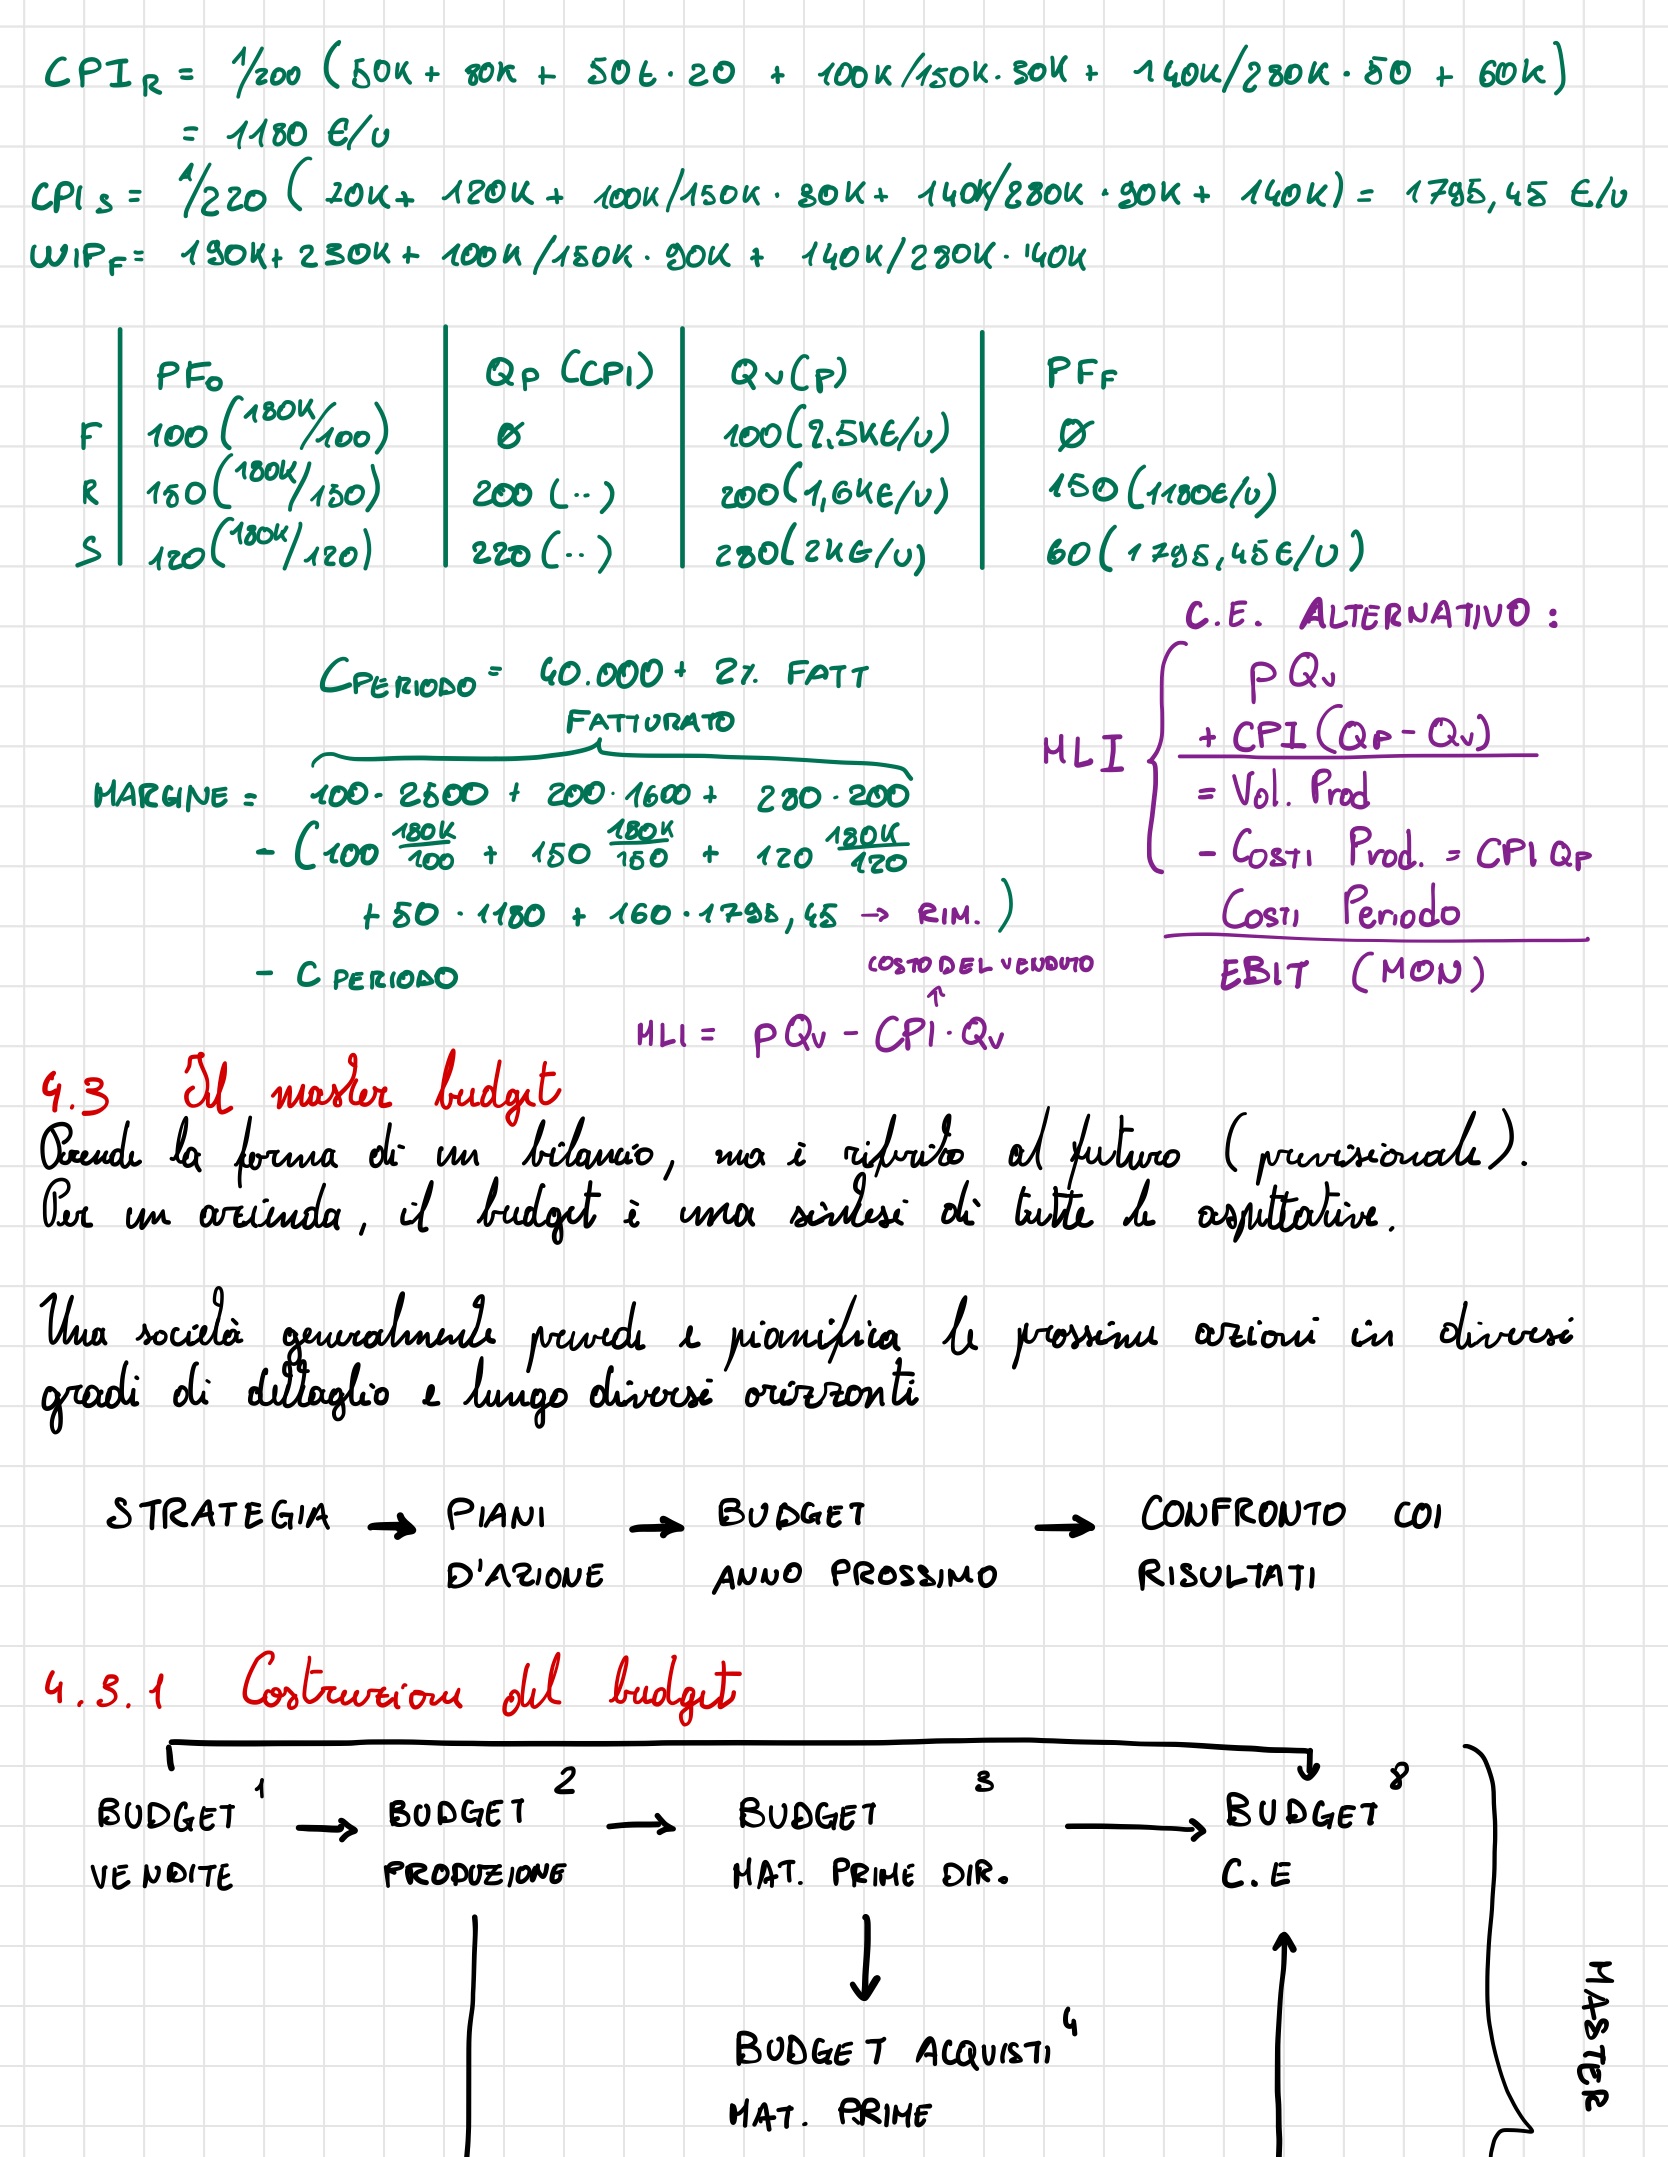 CPI_R = 1/200 (50K + 80K + 50€·20 + 100K/150K·30K + 140K/280K·50 + 60K)
= 1180 €/U
CPI_S = 1/220 (20K + 120K + 100K/150K·30K + 140K/280K·90K + 140K) = 1795,45 €/U
WIP_F = 190K + 230K + 100K/150K·90K + 140K/280K·140K
PF_0 Q_P (CPI) Q_V(P) PF_F
F 100 (180K/100) Ø 100 (2.5K€/U) Ø
R 150 (180K/150) 200 (..) 200 (1,6K€/U) 150 (1180€/U)
S 120 (180K/120) 220 (..) 280 (2K€/U) 60 (1795,45€/U)
C.E. ALTERNATIVO:
C_PERIODO = 40.000 + 2% FATT
FATTURATO
MARGINE = 100·2500 + 200·1600 + 280·200
- (100 180K/100 + 150 180K/150 + 120 180K/120
+ 50·1180 + 160·1795,45 → RIM.)
- C PERIODO
COSTO DEL VENDUTO
↑
MLI = pQ_V - CPI·Q_V
MLI
pQ_V
+ CPI(Q_P - Q_V)
= Vol. Prod
- Costi Prod. = CPI Q_P
Costi Periodo
EBIT (MON)
4.3 Il master budget
Prende la forma di un bilancio, ma è riferito al futuro (previsionale).
Per un azienda, il budget è una sintesi di tutte le aspettative.
Una società generalmente prevede e pianifica le prossime azioni in diversi
gradi di dettaglio e lungo diversi orizzonti
STRATEGIA → PIANI → BUDGET → CONFRONTO COI
D'AZIONE ANNO PROSSIMO RISULTATI
4.3.1 Costruzione del budget
BUDGET 1 → BUDGET 2 → BUDGET 3 → BUDGET 8
VENDITE PRODUZIONE MAT. PRIME DIR. C.E
BUDGET ACQUISTI 4
MAT. PRIME
MASTER